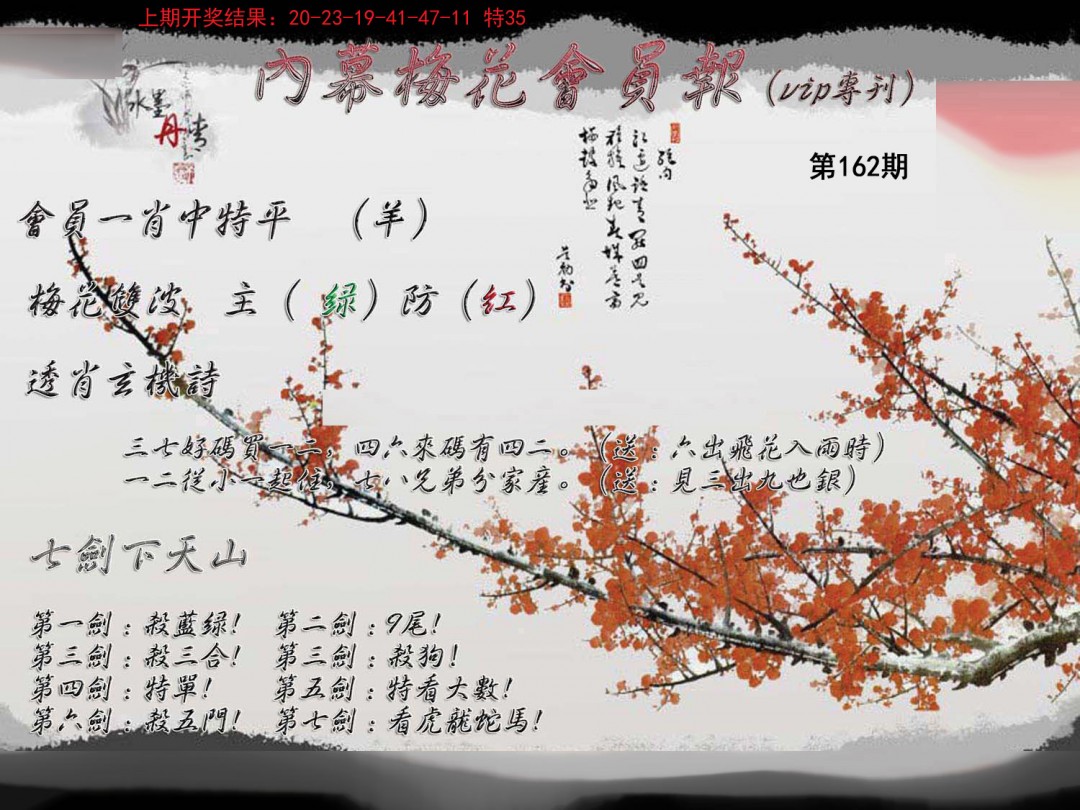 上期开奖结果：20-23-19-41-47-11 特35
內幕梅花會員報(vip專刊)
水墨
丹情
第162期
會員一肖中特平 （羊）
梅花雙波 主（绿）防（红）
透肖玄機詩
三七好碼買一二，四六來碼有四二。（送：六出飛花入雨時）
一二從小一起住，七八兄弟分家産。（送：見三出九也銀）
七劍下天山
第一劍：殺藍绿！ 第二劍：9尾！
第三劍：殺三合！ 第三劍：殺狗！
第四劍：特單！ 第五劍：特看大數！
第六劍：殺五門！ 第七劍：看虎龍蛇馬！